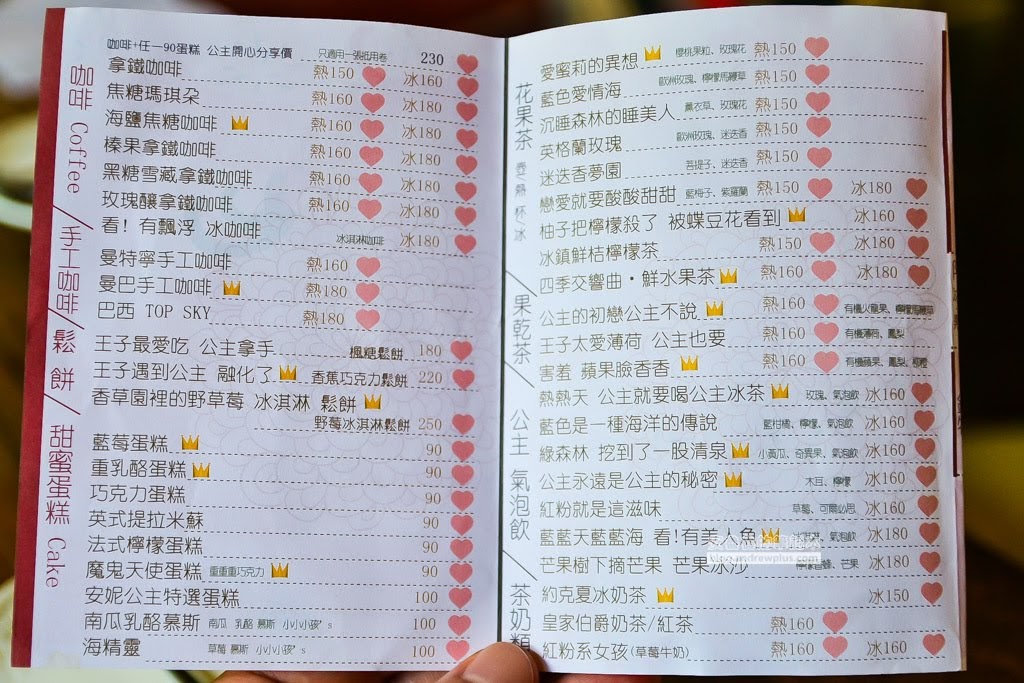 咖啡 Coffee / 手工咖啡 / 鬆餅 / 甜蜜蛋糕 Cake
咖啡+任一90蛋糕 公主開心分享價 只適用一張紙用卷 230
拿鐵咖啡 熱150 冰160
焦糖瑪琪朵 熱160 冰180
海鹽焦糖咖啡 熱160 冰180
榛果拿鐵咖啡 熱160 冰180
黑糖雪藏拿鐵咖啡 熱160 冰180
玫瑰釀拿鐵咖啡 熱160 冰180
看! 有飄浮 冰咖啡 冰淇淋咖啡 冰180
曼特寧手工咖啡 熱160
曼巴手工咖啡 熱180
巴西 TOP SKY 熱180
王子最愛吃 公主拿手 楓糖鬆餅 180
王子遇到公主 融化了 香蕉巧克力鬆餅 220
香草園裡的野草莓 冰淇淋 鬆餅
野莓冰淇淋鬆餅 250
藍莓蛋糕 90
重乳酪蛋糕 90
巧克力蛋糕 90
英式提拉米蘇 90
法式檸檬蛋糕 90
魔鬼天使蛋糕 重重重巧克力 90
安妮公主特選蛋糕 100
南瓜乳酪慕斯 南瓜 乳酪 慕斯 小小小孩's 100
海精靈 草莓 慕斯 小小小孩's 100
花果茶 壺熱杯冰 / 果乾茶 / 公主 氣泡飲 / 茶奶類
愛蜜莉的異想 櫻桃果粒、玫瑰花 熱150
藍色愛情海 歐洲玫瑰、檸檬馬鞭草 熱150
沉睡森林的睡美人 薰衣草、玫瑰花 熱150
英格蘭玫瑰 歐洲玫瑰、迷迭香 熱150
迷迭香夢園 菩提子、迷迭香 熱150
戀愛就要酸酸甜甜 藍梅子、紫羅蘭 熱150 冰180
柚子把檸檬殺了 被蝶豆花看到 冰160
冰鎮鮮桔檸檬茶 熱150 冰160
四季交響曲·鮮水果茶 熱160 冰180
公主的初戀公主不說 熱160 有機火龍果、檸檬馬鞭草
王子太愛薄荷 公主也要 熱160 有機薄荷、鳳梨
害羞 蘋果臉香香 熱160 有機蘋果、鳳梨、
熱熱天 公主就要喝公主冰茶 玫瑰、氣泡飲 冰160
藍色是一種海洋的傳說 藍柑橘、檸檬、氣泡飲 冰160
綠森林 挖到了一股清泉 小黃瓜、奇異果、氣泡飲 冰160
公主永遠是公主的秘密 木耳、檸檬 冰160
紅粉就是這滋味 草莓、可爾必思 冰160
藍藍天藍藍海 看!有美人魚 氣泡飲 冰180
芒果樹下摘芒果 芒果冰沙 芒果 冰180
約克夏冰奶茶 冰150
皇家伯爵奶茶/紅茶 熱160
紅粉系女孩(草莓牛奶) 熱160 冰160